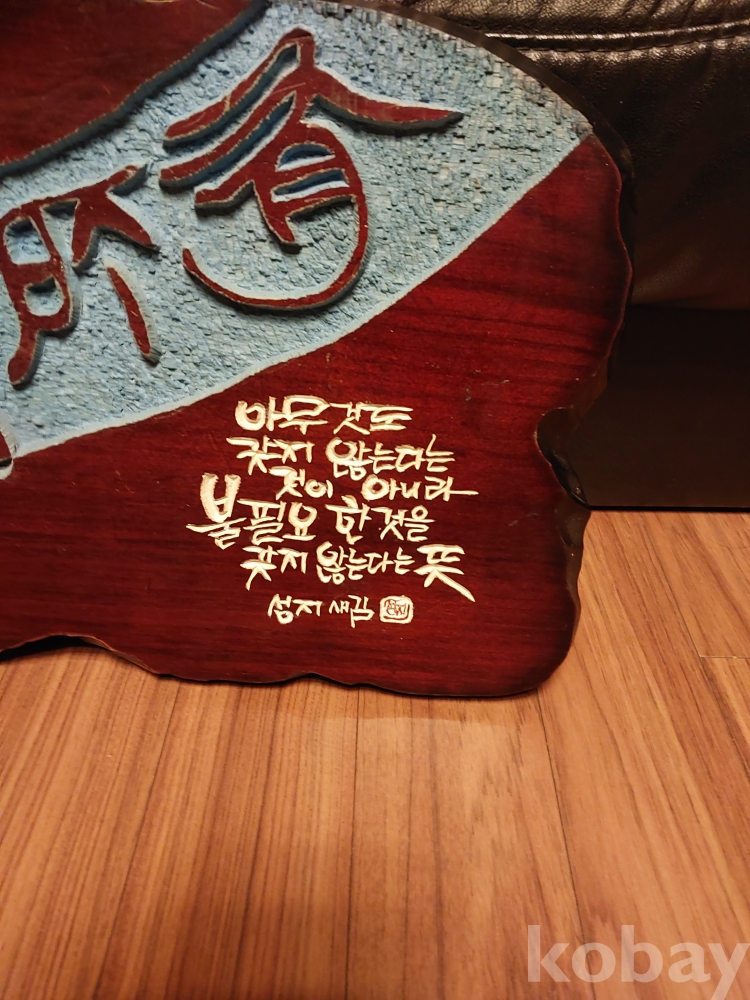 所有
아무것도
갖지 않는다는
것이 아니라
불필요 한것을
갖지 않는다는 뜻
성지 새김
kobay